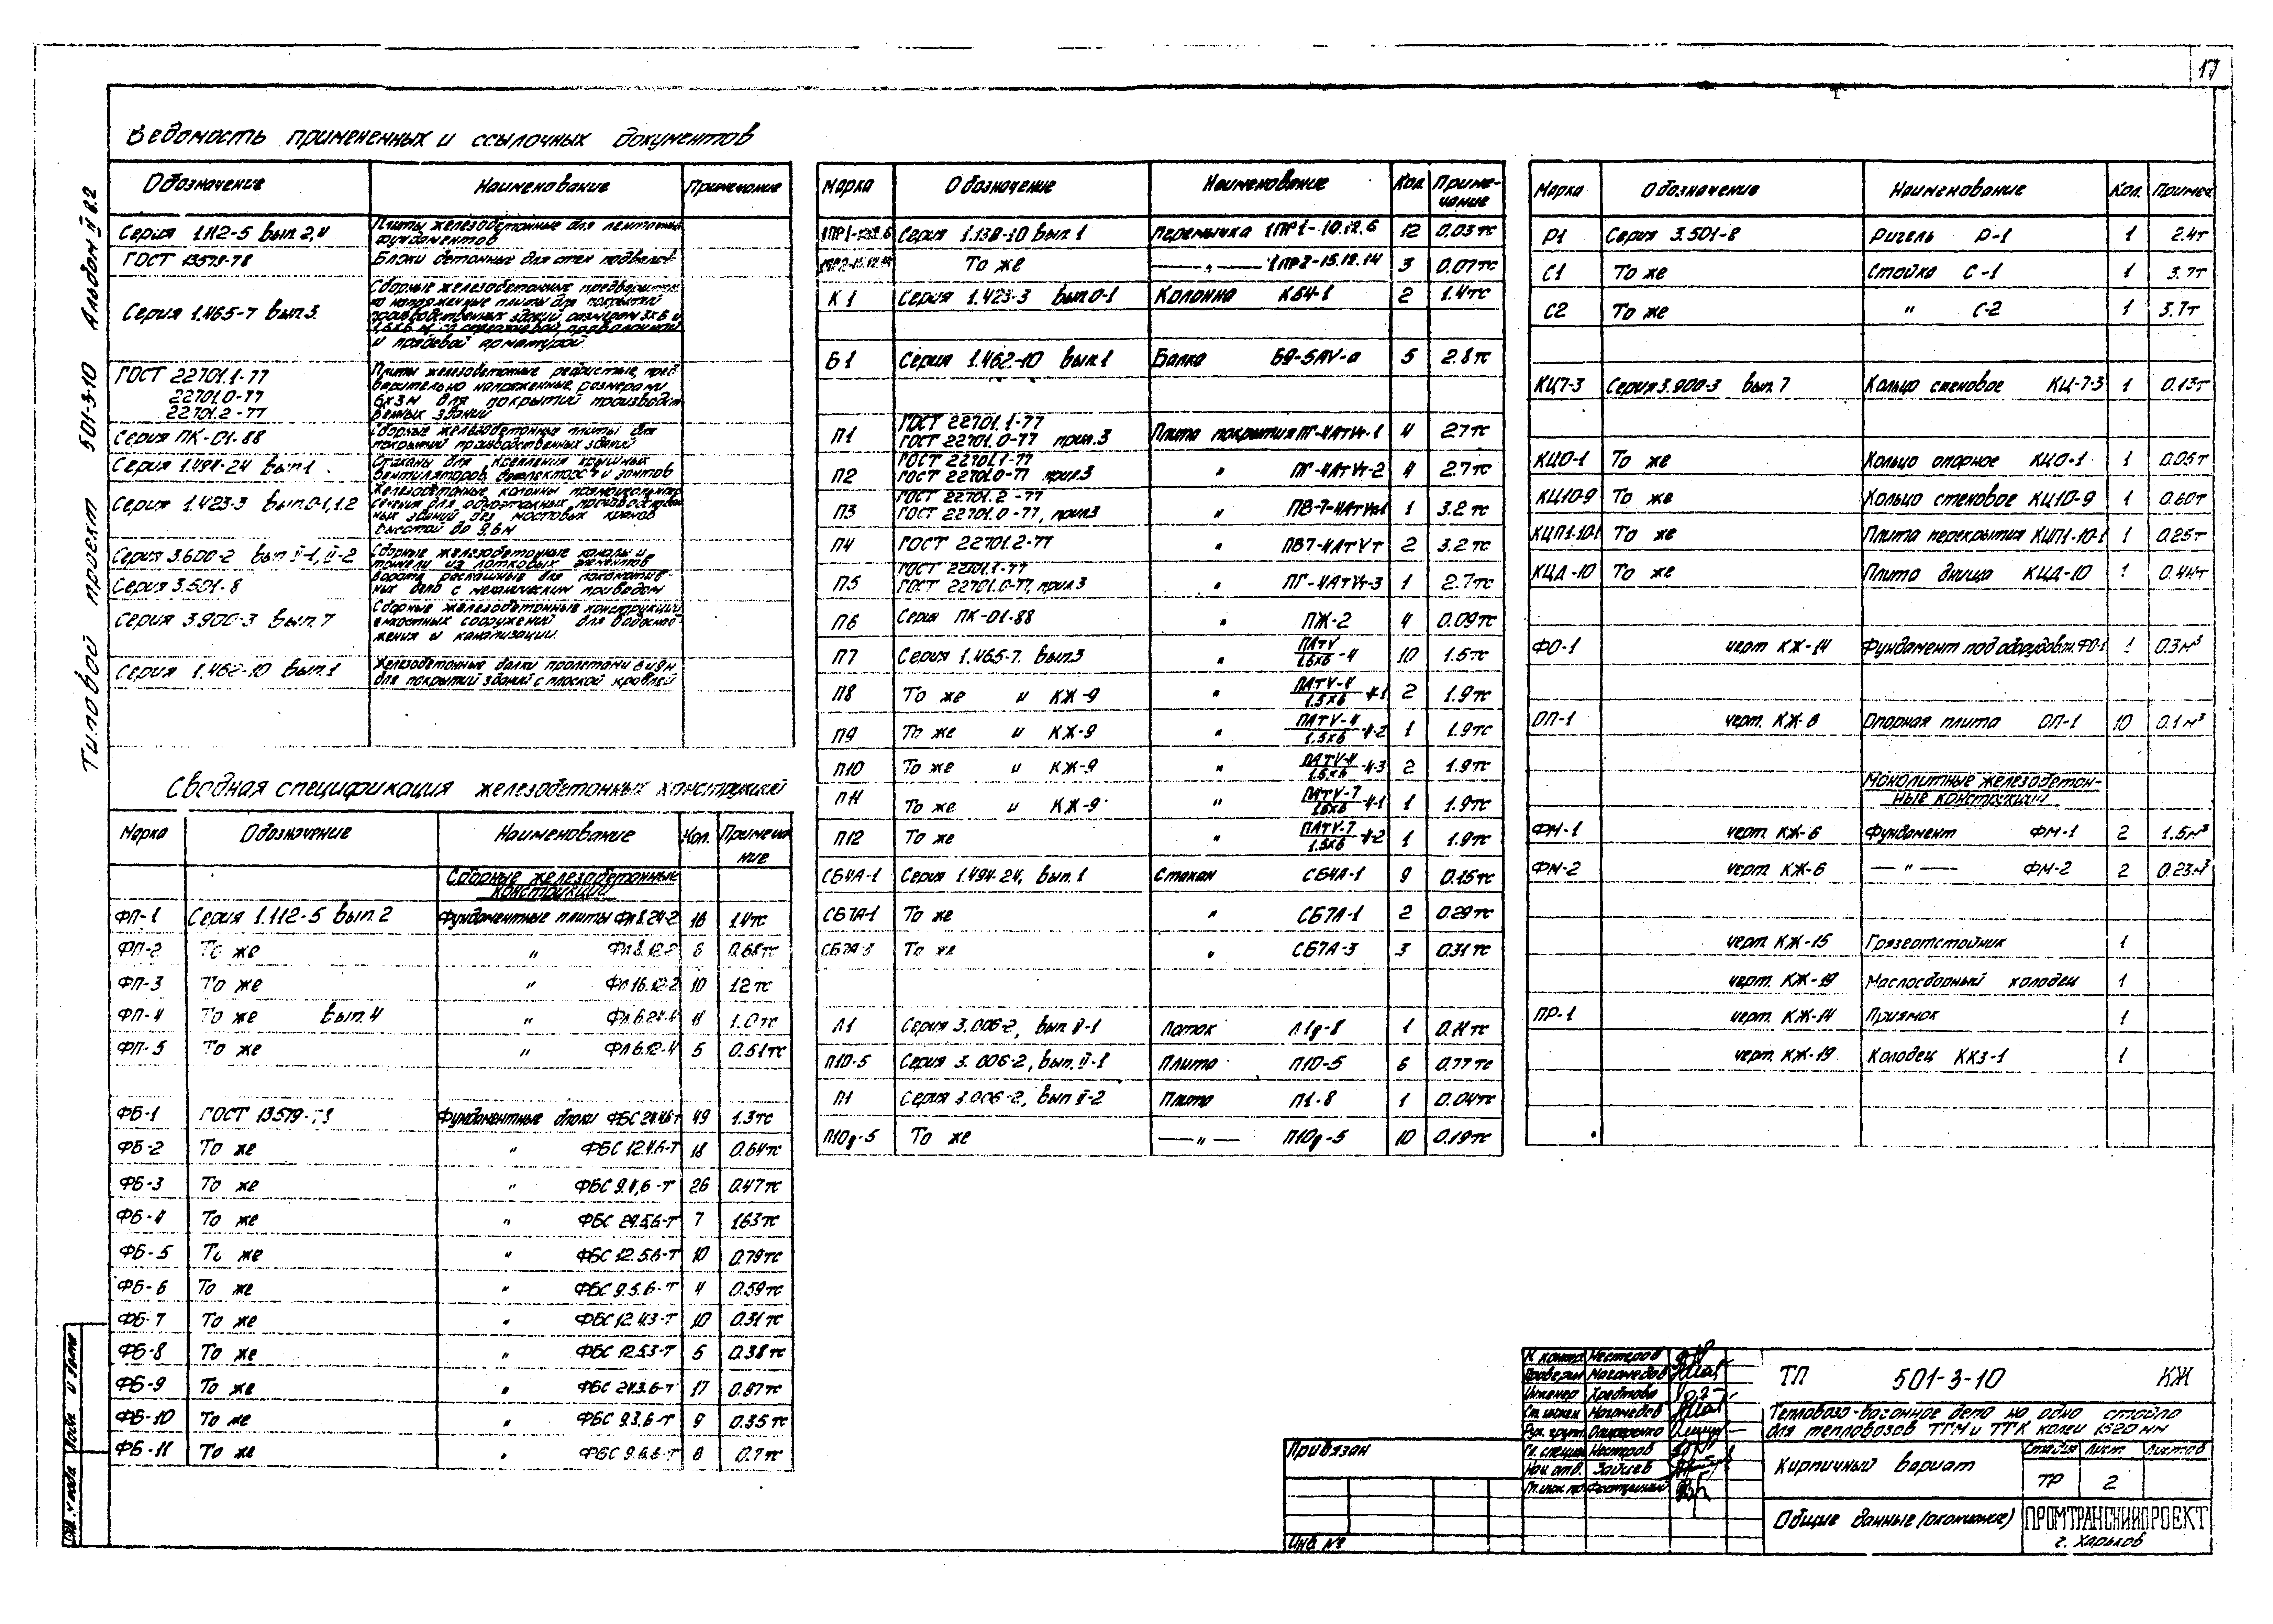 17
Типовой проект 501-3-10 Альбом II в.2
Ведомость примененных и ссылочных документов
Обозначение Наименование Примечание
Серия 1.112-5 вып. 2,4 Плиты железобетонные для ленточных фундаментов
ГОСТ 13579-78 Блоки бетонные для стен подвалов
Серия 1.465-7 вып.3 Сборные железобетонные предварительно напряженные плиты для покрытий производственных зданий размером 3х6 и 1,5х6 м со стержневой, проволочной и прядевой арматурой
ГОСТ 22701.1-77
22701.0-77
22701.2-77
Плиты железобетонные ребристые, предварительно напряженные, размерами 6х3м для покрытий производственных зданий
Серия ПК-01-88 Сборные железобетонные плиты для покрытий производственных зданий
Серия 1.494-24 вып.1 Стаканы для крепления крышных вентиляторов, дефлекторов и зонтов
Серия 1.423-3 вып.0-1,1,2 Железобетонные колонны прямоугольного сечения для одноэтажных производственных зданий без мостовых кранов высотой до 9,6м
Серия 3.600-2 вып. II-1, II-2 Сборные железобетонные каналы и тоннели из лотковых элементов
Серия 3.501-8 Ворота распашные для локомотивных депо с механическим приводом
Серия 3.900-3 вып.7 Сборные железобетонные конструкции емкостных сооружений для водоснабжения и канализации.
Серия 1.462-10 вып.1 Железобетонные балки пролетами 6 и 9м для покрытий зданий с плоской кровлей
Сводная спецификация железобетонных конструкций
Марка Обозначение Наименование Кол. Примечание
Сборные железобетонные конструкции
ФП-1 Серия 1.112-5 вып.2 Фундаментные плиты Фл8.24-2 16 1.4тс
ФП-2 То же " Фл8.12-2 6 0.68тс
ФП-3 То же " Фл16.12-2 10 1.2тс
ФП-4 То же вып.4 " Фл6.24-4 11 1.0тс
ФП-5 То же " Фл6.12-4 5 0.51тс
ФБ-1 ГОСТ 13579-78 Фундаментные блоки ФБС 24.4.6-Т 49 1.3тс
ФБ-2 То же " ФБС 12.4.6-Т 18 0.64тс
ФБ-3 То же " ФБС 9.4.6-Т 26 0.47тс
ФБ-4 То же " ФБС 24.5.6-Т 7 1.63тс
ФБ-5 То же " ФБС 12.5.6-Т 10 0.79тс
ФБ-6 То же " ФБС 9.5.6-Т 4 0.59тс
ФБ-7 То же " ФБС 12.4.3-Т 10 0.31тс
ФБ-8 То же " ФБС 12.5.3-Т 5 0.38тс
ФБ-9 То же " ФБС 24.3.6-Т 17 0.97тс
ФБ-10 То же " ФБС 9.3.6-Т 9 0.35тс
ФБ-11 То же " ФБС 9.6.6-Т 8 0.7тс
Марка Обозначение Наименование Кол. Примечание
1ПР1-10.12.6 Серия 1.138-10 вып.1 Перемычка 1ПР1-10.12.6 12 0.03тс
1ПР2-15.12.14 То же —"— 1ПР2-15.12.14 3 0.07тс
К1 Серия 1.423-3 вып.0-1 Колонна КБ4-1 2 1.4тс
Б1 Серия 1.462-10 вып.1 Балка Б9-5АV-а 5 2.8тс
П1 ГОСТ 22701.1-77 ГОСТ 22701.0-77 прил.3 Плита покрытия ПГ-4АтVт-1 4 2.7тс
П2 ГОСТ 22701.1-77 ГОСТ 22701.0-77 прил.3 " ПГ-4АтVт-2 4 2.7тс
П3 ГОСТ 22701.2-77 ГОСТ 22701.0-77, прил.3 " ПВ-7-4АтVт-1 1 3.2тс
П4 ГОСТ 22701.2-77 " ПВ7-4АтVт 2 3.2тс
П5 ГОСТ 22701.1-77 ГОСТ 22701.0-77, прил.3 " ПГ-4АтVт-3 1 2.7тс
П6 Серия ПК-01-88 " ПЖ-2 4 0.09тс
П7 Серия 1.465-7. вып.3 " ПАТV/1.5х6-4 10 1.5тс
П8 То же и КЖ-9 " ПАТV-4/1.5х6-4-1 2 1.9тс
П9 То же и КЖ-9 " ПАТV-4/1.5х6-4-2 1 1.9тс
П10 То же и КЖ-9 " ПАТV-4/1.5х6-4-3 2 1.9тс
П11 То же и КЖ-9 " ПАТV-7/1.5х6-4-1 1 1.9тс
П12 То же " ПАТV-7/1.5х6-4-2 1 1.9тс
СБ4А-1 Серия 1.494-24, вып.1 Стакан СБ4А-1 9 0.15тс
СБ7А-1 То же " СБ7А-1 2 0.29тс
СБ7А-3 То же " СБ7А-3 3 0.31тс
Л1 Серия 3.006-2, вып II-1 Лоток Л1д-8 1 0.11тс
П10-5 Серия 3.006-2, вып. II-1 Плита П10-5 6 0.77тс
П1 Серия 3.006-2, вып II-2 Плита П1-8 1 0.04тс
П10д-5 То же —"— П10д-5 10 0.19тс
Марка Обозначение Наименование Кол. Примеч
Р1 Серия 3.501-8 Ригель Р-1 1 2.4т
С1 То же Стойка С-1 1 3.7т
С2 То же " С-2 1 3.7т
КЦ7-3 Серия 3.900-3 вып.7 Кольцо стеновое КЦ-7-3 1 0.13т
КЦО-1 То же Кольцо опорное КЦО-1 1 0.05т
КЦ10-9 То же Кольцо стеновое КЦ10-9 1 0.60т
КЦП1-10-1 То же Плита перекрытия КЦП1-10-1 1 0.25т
КЦД-10 То же Плита днища КЦД-10 1 0.44т
ФО-1 черт КЖ-14 Фундамент под оборудовн. ФО-1 1 0.3м³
ОП-1 черт. КЖ-6 Опорная плита ОП-1 10 0.1м³
Монолитные железобетонные конструкции
ФМ-1 черт. КЖ-6 Фундамент ФМ-1 2 1.5м³
ФМ-2 черт. КЖ-6 —"— ФМ-2 2 0.23м³
черт. КЖ-15 Грязеотстойник 1
черт. КЖ-19 Маслосборный колодец 1
ПР-1 черт. КЖ-14 Приямок 1
черт. КЖ-19 Колодец ККЗ-1 1
Привязан
Инв №
Н контр Нестеров
Проверил Магомедов
Инженер Хребтова
Ст. инжен Магомедов
Рук. групп
Гл. специал Нестеров
Нач. отд. Зайцев
Гл. инж. пр
ТП 501-3-10 КЖ
Тепловозо-вагонное депо на одно стойло
для тепловозов ТГМ и ТГК колеи 1520 мм
Кирпичный вариант
Стадия Лист Листов
ТР 2
Общие данные (окончание)
ПРОМТРАНСНИИПРОЕКТ
г. Харьков
Подп и дата